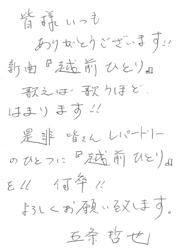 皆様いつも
ありがとうございます!!
新曲『越前ひとり』
歌えば歌うほど、
はまります!!
是非皆さんレパートリー
のひとつに『越前ひとり』
を!! 何卒
よろしくお願い致します。
五条哲也